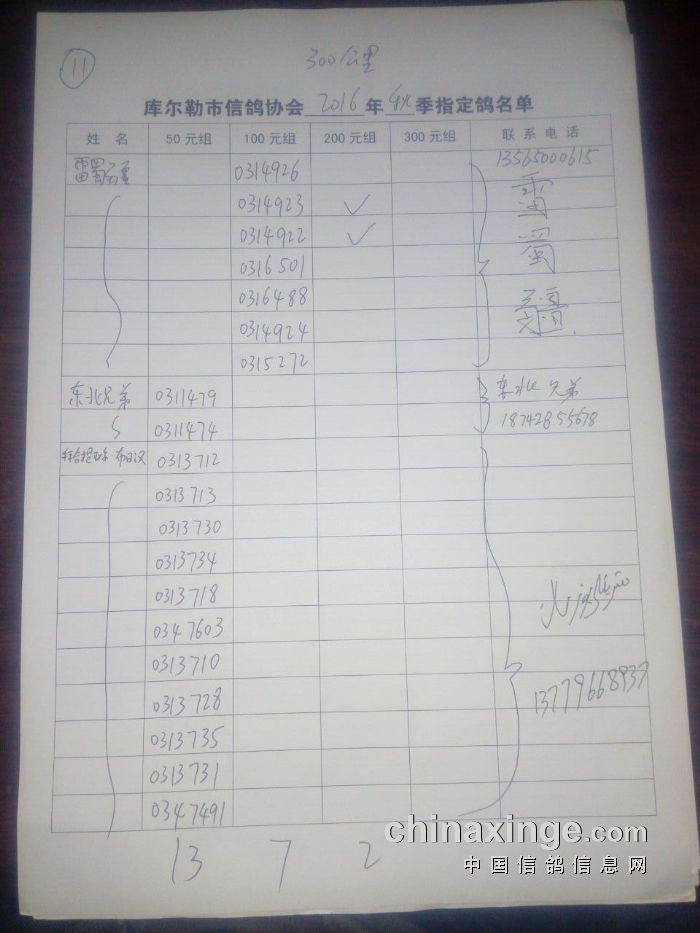 11
300公里
库尔勒市信鸽协会 2016 年 秋 季指定鸽名单
姓 名 50元组 100元组 200元组 300元组 联系电话
0314926 13565000615
0314923 ✓
0314922 ✓
0316501
0316488
0314924
0315272
东北兄弟 0311479 东北兄弟
0311474 18742855678
0313712
0313713
0313730
0313734
0313718
0347603
0313710
0313728 13779668937
0313735
0313731
0347491
13 7 2
chinaxinge.com
中国信鸽信息网